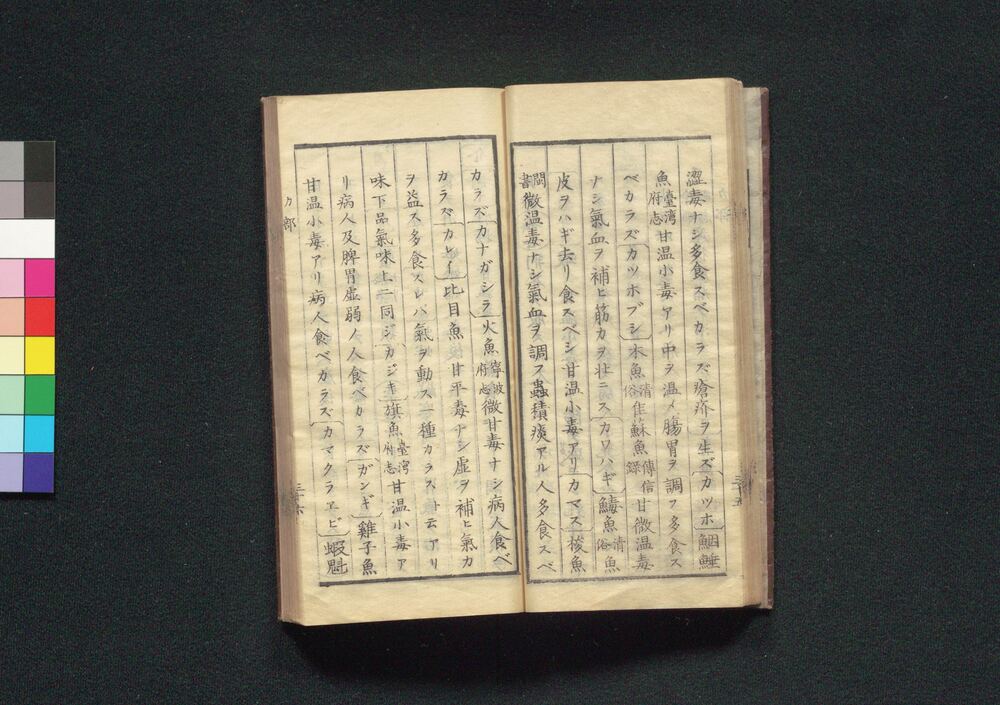 澀毒ナシ多食スベカラズ瘡疥ヲ生ズカツホ鮰鮭
魚臺灣府志甘温小毒アリ中ヲ温メ腸胃ヲ調フ多食ス
ベカラズカツホブシ木魚清俗隹蘇魚傳信録甘微温毒
ナシ氣血ヲ補ヒ筋力ヲ壮ニスカワハギ魚清俗魚
皮ヲハギ去リ食スベシ甘温小毒アリカマス梭魚
閩書微温毒ナシ氣血ヲ調フ蟲積痰アル人多食スベ
カラズカナガシラ火魚寧波府志微甘毒ナシ病人食ベ
カラズカレイ比目魚甘平毒ナシ虚ヲ補ヒ氣力
ヲ益ス多食スレバ氣ヲ動ス一種カラスト云アリ
味下品氣味上ニ同ジカジキ旗魚臺灣府志甘温小毒ア
リ病人及脾胃虚弱ノ人食ベカラズガンギ雞子魚
甘温小毒アリ病人食ベカラズカマクラヱビ蝦魁
カ部
三十五
三十六